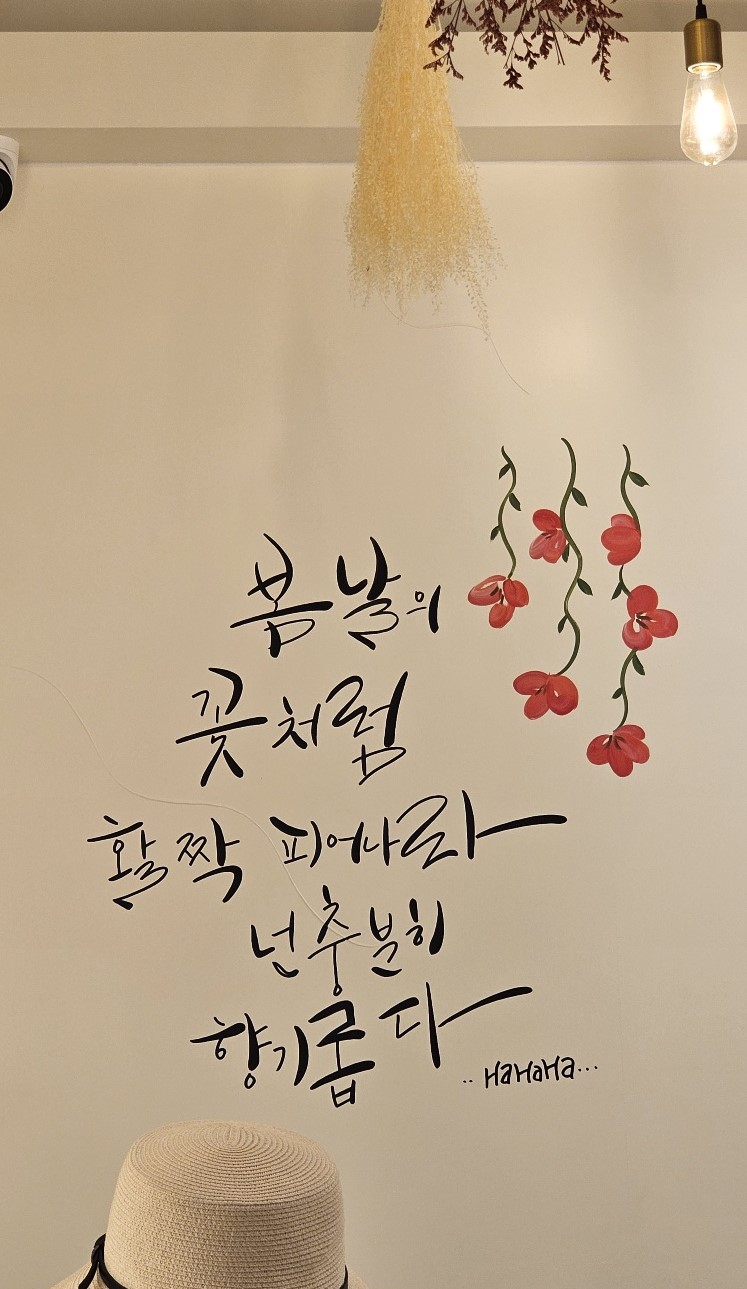 봄날의
꽃처럼
활짝 피어나라
넌 충분히
향기롭다
..HaHaHa...